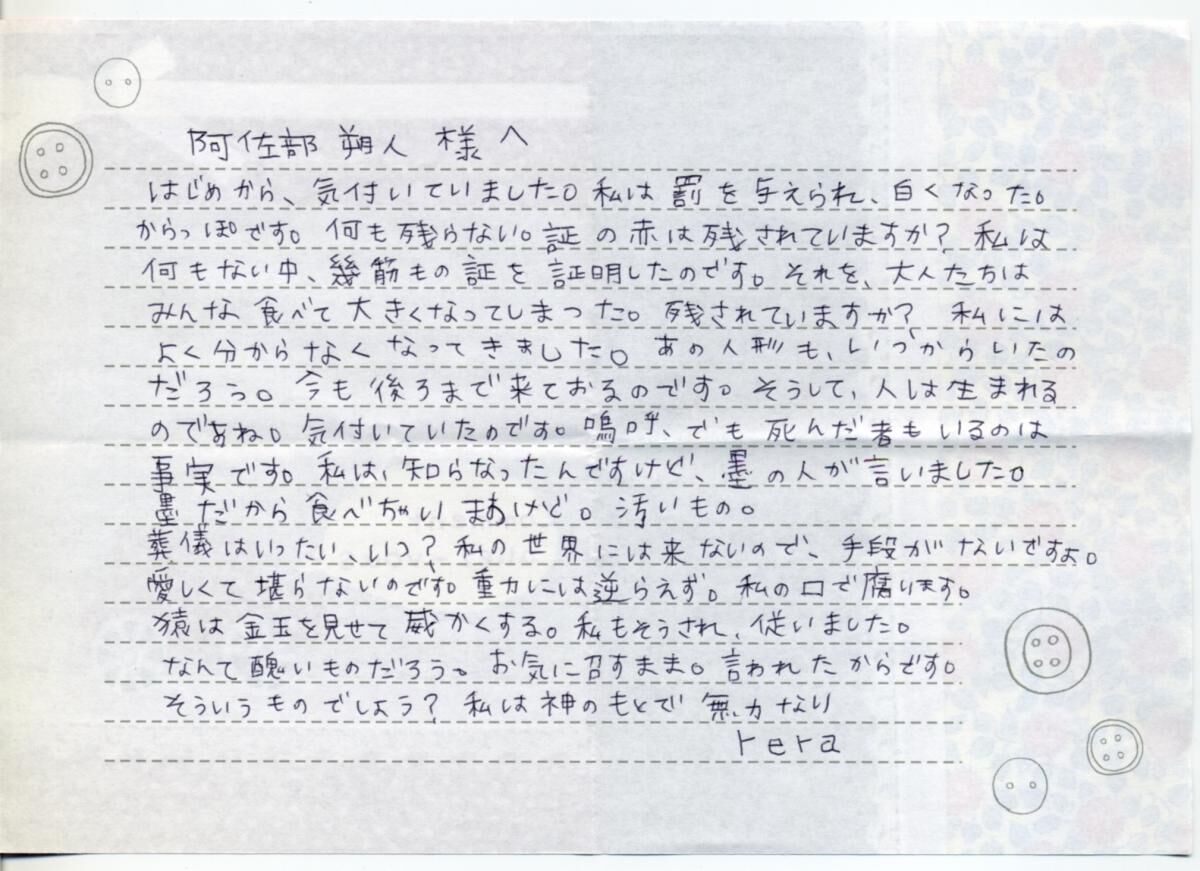 阿佐部 朔人 様へ
はじめから、気付いていました。私は 罰を与えられ、白くなった。
からっぽです。何も残らない。証の赤は残されていますか? 私は
何もない中、幾筋もの証を証明したのです。それを、大人たちは
みんな食べて大きくなってしまった。残されていますか? 私には
よく分からなくなってきました。あの人形も、いつからいたの
だろう。今も後ろまで来ておるのです。そうして、人は生まれる
のであね。気付いていたのです。嗚呼、でも死んだ者もいるのは
事実です。私は、知らなったんですけど、墨の人が言いました。
墨だから食べちゃいまあけど。汚いもの。
葬儀はいったい、いつ? 私の世界には来ないので、手段がないですよ。
愛しくて堪らないのです。重力には逆らえず。私の口で腐ります。
猿は金玉を見せて威かくする。私もそうされ、従いました。
なんて醜いものだろう。お気に召すまま。言われたからです。
そういうものでしょう? 私は神のもとで 無力なり
rera